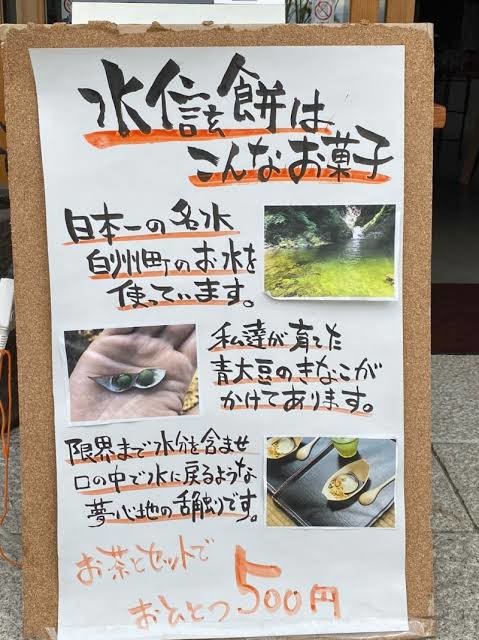 水信玄餅は
こんなお菓子
日本一の名水
白州町のお水を
使っています。
私達が育てた
青大豆のきなこが
かけてあります。
限界まで水分を含ませ
口の中で水に戻るような
夢心地の舌触りです。
お茶とセットで
おひとつ500円